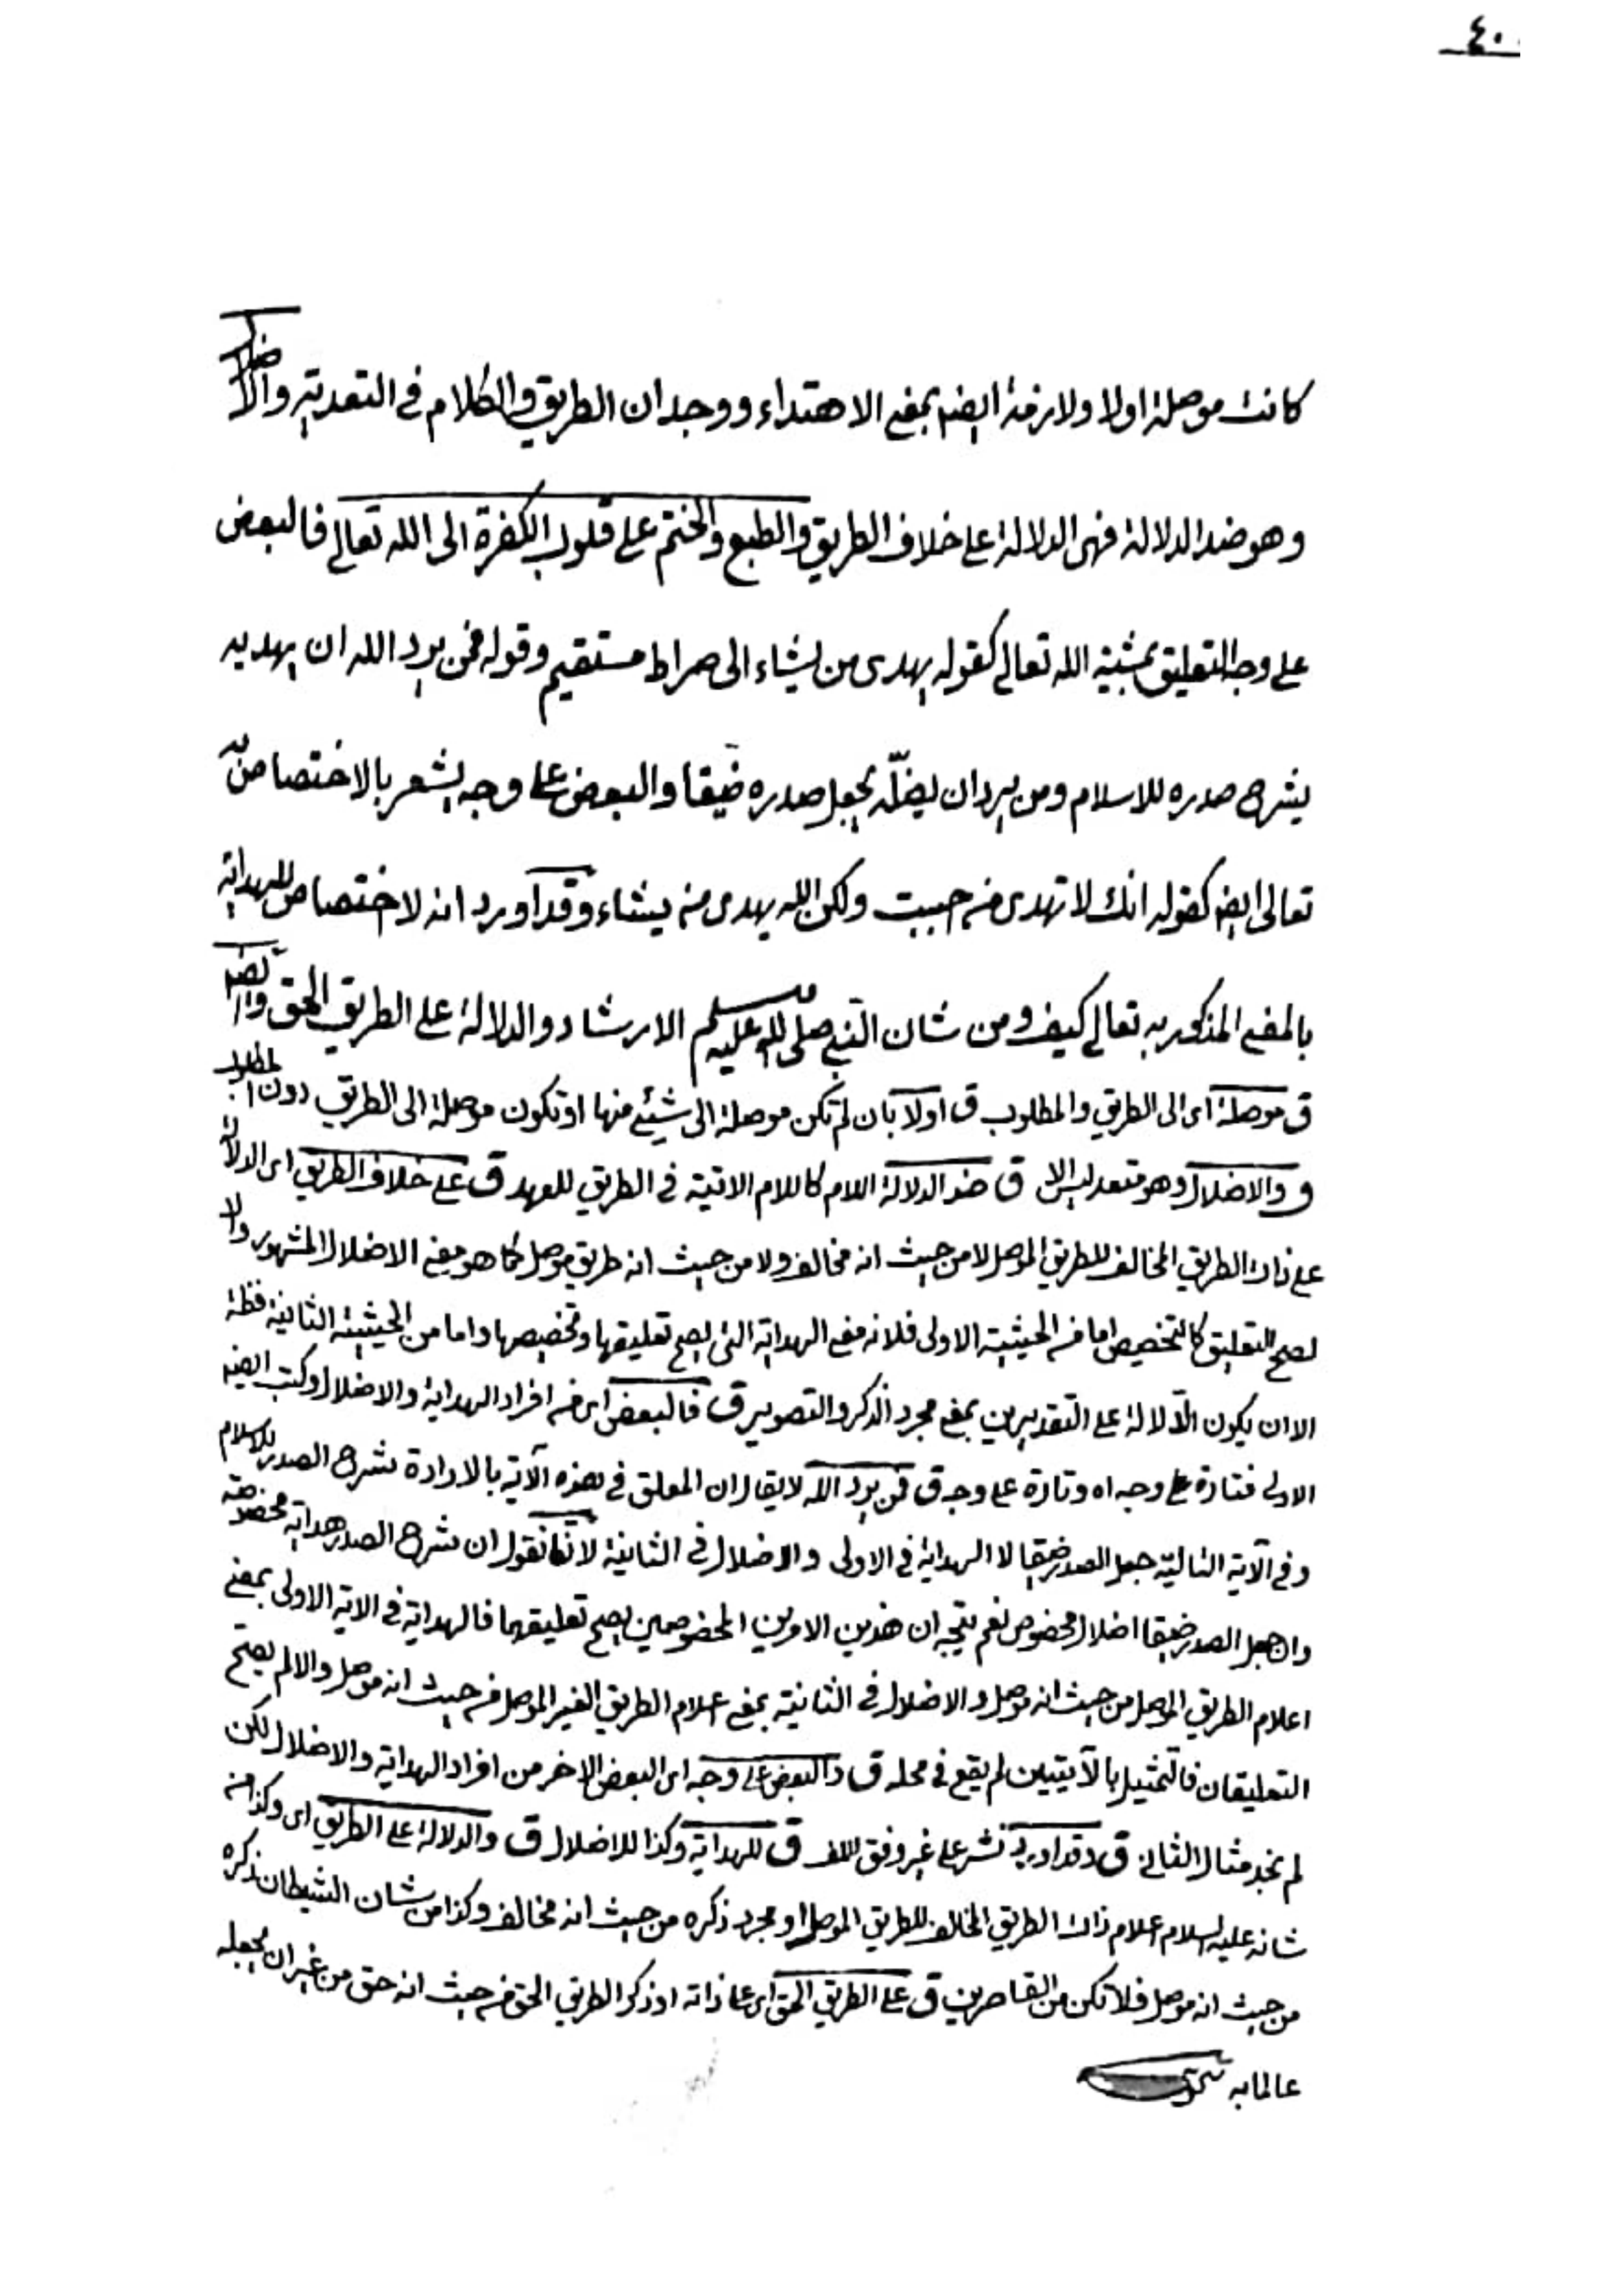 ٤٠
كانت موصلة اولا ولازمة ايضا بمعنى الاهتداء ووجدان الطريق والكلام في التعدية والاضلال
وهو ضد الدلالة فهى الدلالة على خلاف الطريق والطبع والختم على قلوب الكفرة الى الله تعالى فالبعض
على وجه التعليق بمشية الله تعالى كقوله يهدى من يشاء الى صراط مستقيم وقوله فمن يرد الله ان يهديه
يشرح صدره للاسلام ومن يرد ان يضلّه يجعل صدره ضيقا والبعض على وجه يشعر بالاختصاص به
تعالى ايضا كقوله انك لا تهدى من احببت ولكن الله يهدى من يشاء وقد اورد انه لا اختصاص للهداية
بالمعنى المذكور به تعالى كيف ومن شان النبى صلى الله عليه وسلم الارشاد والدلالة على الطريق الحق وايضا
ق موصلة اى الى الطريق والمطلوب ق اولا بان لم تكن موصلة الى شيئ منها او تكون موصلة الى الطريق دون المطلوب
ق والاضلال وهو متعد ليس الا ق ضد الدلالة اللام كاللام الاتية في الطريق للعهد ق على خلاف الطريق اى الدلالة
على ذات الطريق المخالف للطريق الموصل لا من حيث انه مخالف ولا من حيث انه طريق موصل كما هو معنى الاضلال المشهور والا
لصح التعليق كالتخصيص اما من الحيثية الاولى فلانه معنى الهداية التى يصح تعليقها وتخصيصها واما من الحيثية الثانية
الا ان يكون الدلالة على التقديرين بمعنى مجرد الذكر والتصوير ق فالبعض اى من افراد الهداية والاضلال وكتب ايضا
الاولى فتارة على وجه اه وتارة على وجه ق فمن يرد الله لا يقال ان المعلق في هذه الآية بالارادة شرح الصدر للاسلام
وفي الآية التالية جعل الصدر ضيقا لا الهداية في الاولى والاضلال في الثانية لانا نقول ان شرح الصدر هداية مخصوصة
وان جعل الصدر ضيقا اضلال مخصوص نعم يتجه ان هذين الامرين المخصوصين يصح تعليقهما فالهداية في الاية الاولى بمعنى
اعلام الطريق الموصل من حيث انه موصل والاضلال في الثانية بمعنى اعلام الطريق الغير الموصل من حيث انه موصل والا لم يصح
التعليقان فالتمثيل بالآيتين لم يقع في محله ق والبعض على وجه اى البعض الاخر من افراد الهداية والاضلال لكن
لم نجد مثال الثانى ق وقد اورد نشر على غير وفق اللف ق للهداية وكذا للاضلال ق والدلالة على الطريق اى وكذا من
شانه عليه السلام اعلام ذات الطريق المخالف للطريق الموصل او مجرد ذكره من حيث انه مخالف وكذا من شان الشيطان ذكره
من حيث انه موصل فلا تكن من القاصرين ق على الطريق الحق اى على ذاته او ذكر الطريق الحق من حيث انه حق من غير ان يجعله
عالما به